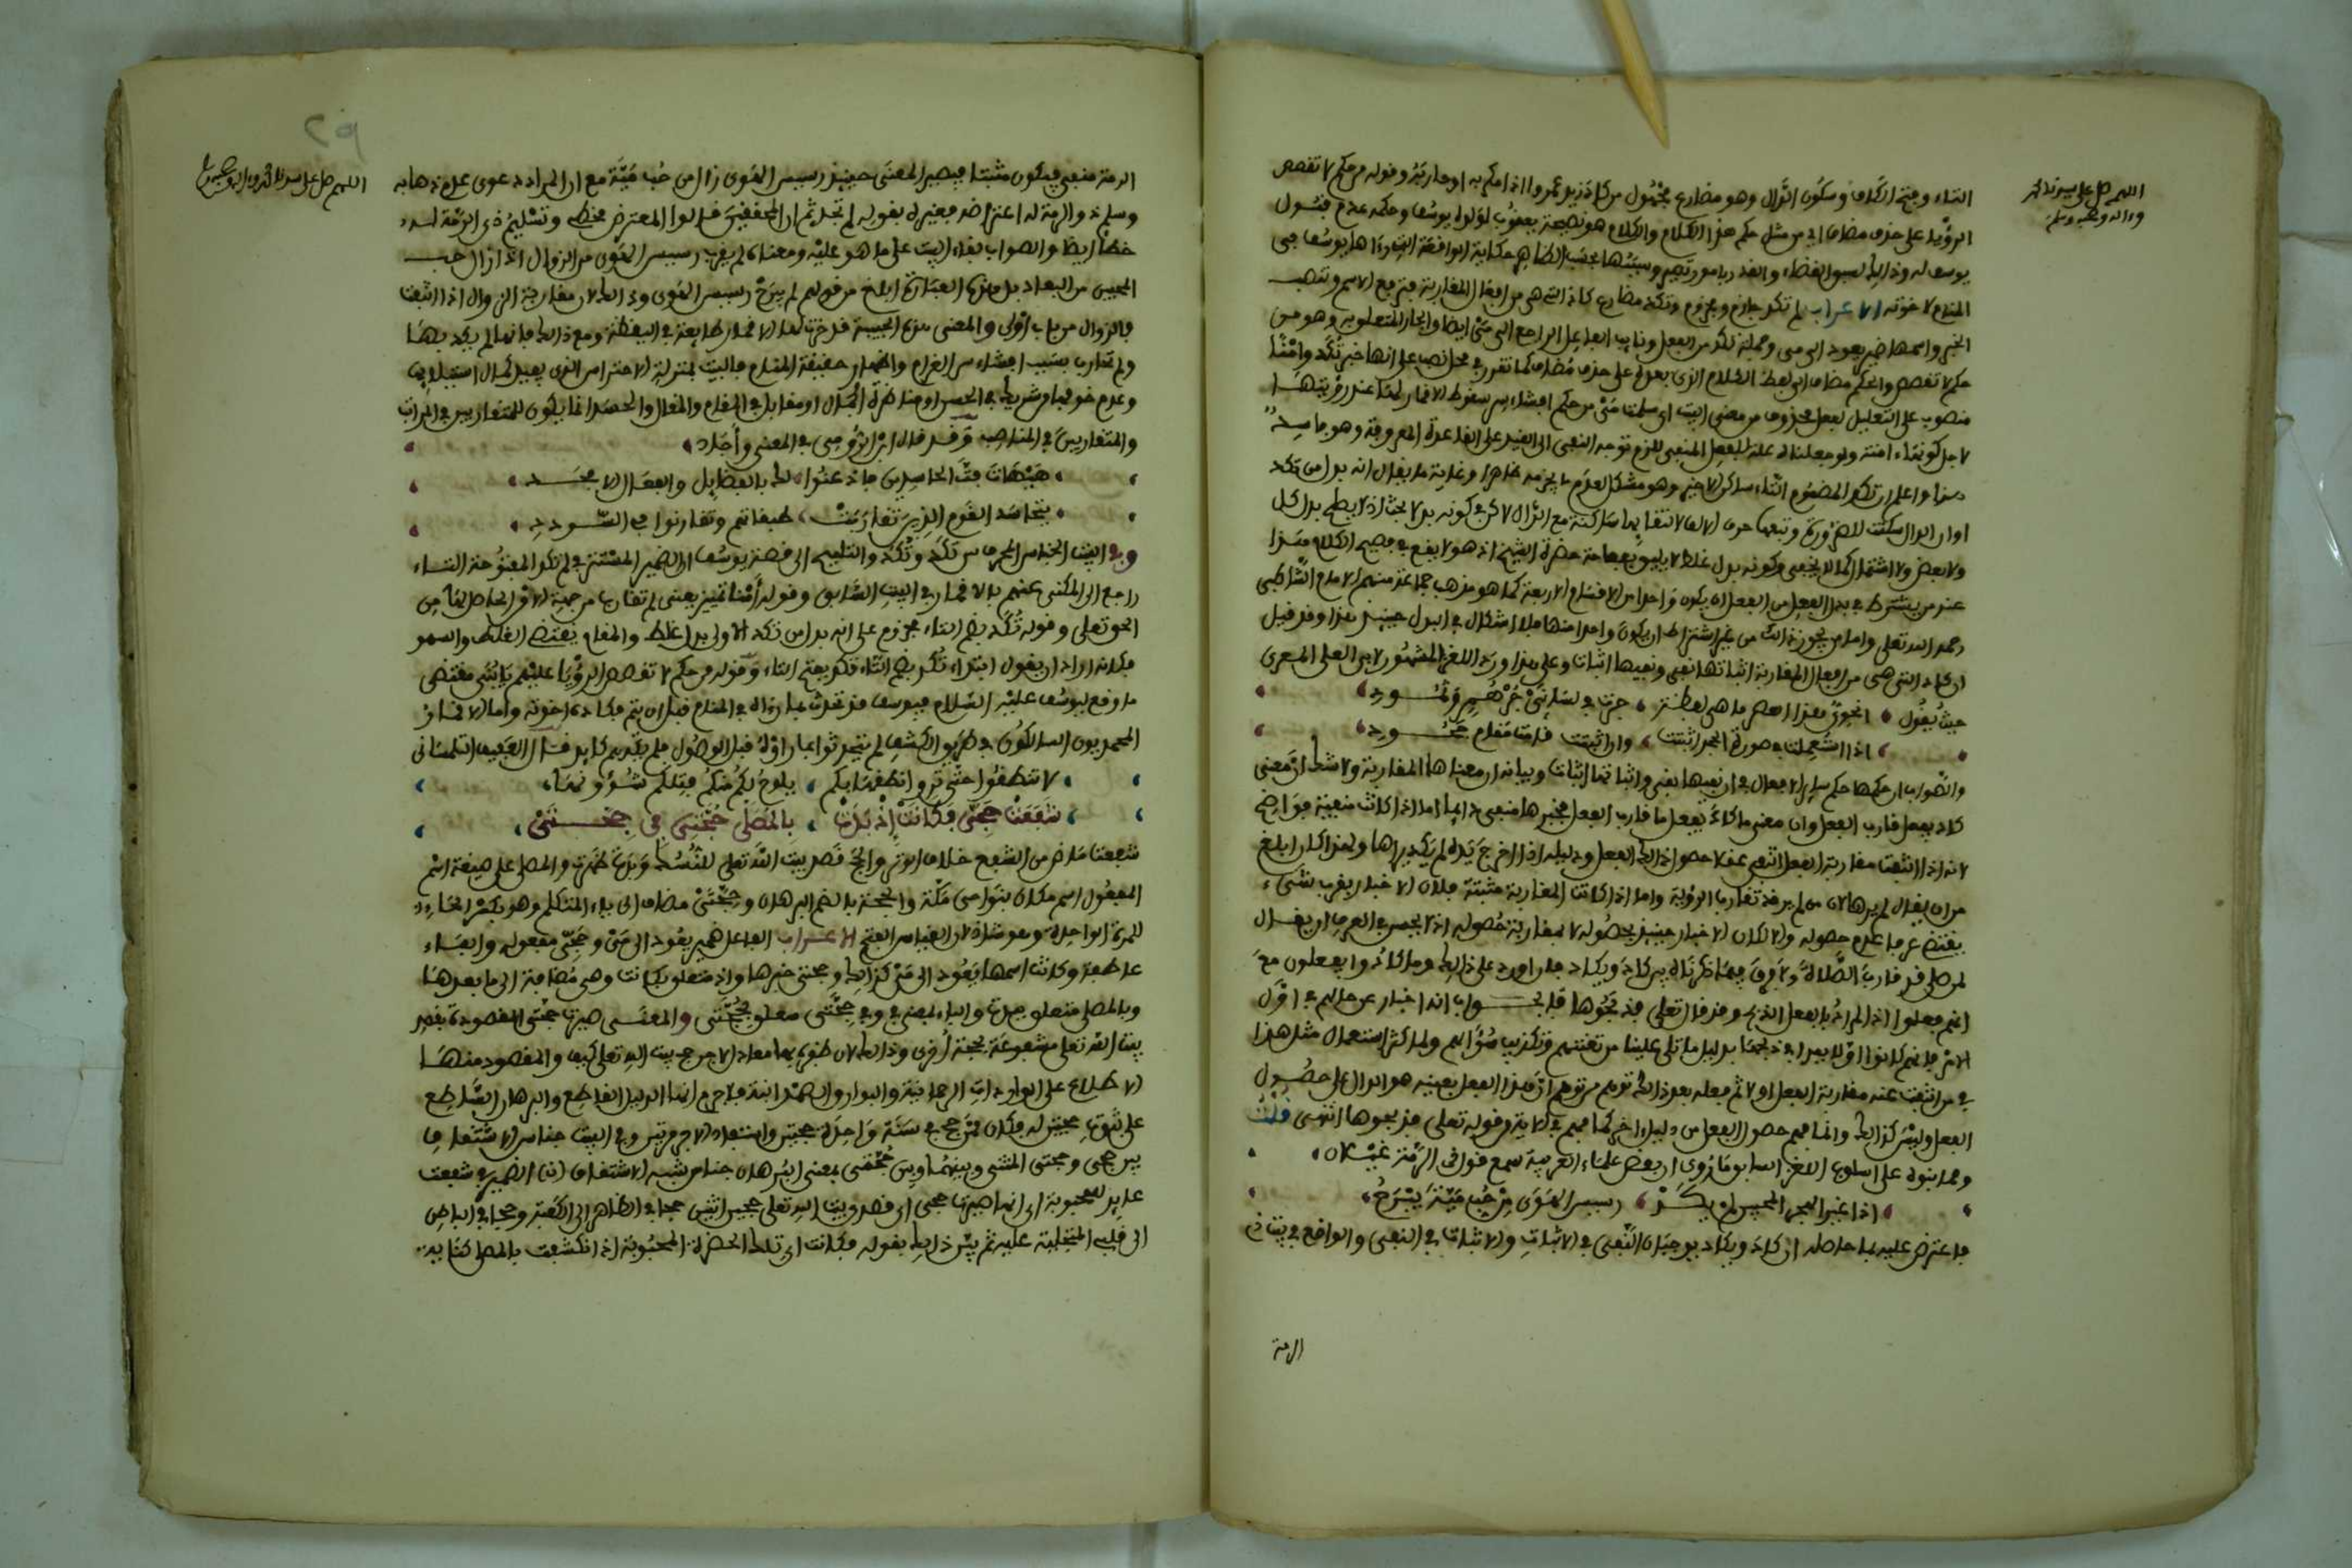 اللهم صل على سيدنا محمد
وءاله وصحبه وسلم
التاء وفتح الكاف وسكون الدال وهو مضارع مجهول من كاد زيد عمروا اذا مكر به او حاربه وقوله من حكم لا تقصص
الرؤيا على حذف مضاف اي من مثل حكم هذا الكلام والكلام هو نصيحة يعقوب لولده يوسف وحكمه عدم قبول
يوسف له وذالك لسبق القضاء
المنام لاخوته الاعراب لم تكد جازم ومجزوم وتكد مضارع كاد التي هي من افعال المقاربة فترفع الاسم وتنصب
الخبر واسمها ضمير يعود الى مى وجملة تكد من الفعل ونايب الفاعل الراجع الى مى ايضا والجار المتعلق به وهو من
حكم لا تقصص والحكم مضاف الى لفظ الكلام الذي بعده على حذف مضاف كما تقرر في محل نصب على انها خبر تكد وامنا
منصوب على التعليل لفعل محذوف من معنى البيت
لاجل كونها ءامنة ولو جعلناه علة للفعل المنفي للزم توجه النفي الى القيد على القاعدة المعروفة وهو فاسد
هذا واعلم ان تكد المضموم التاء ساكن الاخر وهو مشكل لعدم ما يجزمه ظاهرا وغاية ما يقال انه بدل من تكد
او ان الدال سكنت للضرورة
ولا بعض ولا اشتمال كما لا يخفى وكونه بدل غلط لا يليق بفصاحة حضرة الشيخ اذ هو لا يقع في فصيح الكلام هذا
عند من يشترط في بدل الفعل من الفعل ان يكون واحدا من الاقسام الاربعة كما هو مذهب جماعة منهم الامام الشاطبي
رحمه الله تعلى واما من يجوز ذالك من غير اشتراط ان يكون واحدا منها فلا اشكال في البدل حينئذ هذا وقد قيل
ان كاد التي هي من افعال المقاربة اثباتها نفي ونفيها اثبات وعلى هذا ورد اللغز المشهور لابي العلى المعرى
حيث يقول انحوي هذا العصر ما هي لفظة جرت في لساني جرهم وثمود
اذا استعملت في صورة الجحد اثبتت وان اثبتت قامت مقام جحود
والصواب ان حكمها حكم ساير الافعال في ان نفيها نفي واثباتها اثبات وبيانه ان معناها المقاربة ولا شك ان معنى
كاد يفعل قارب الفعل وان معنى ما كاد يفعل ما قارب الفعل فخبرها منفي دايما اما اذا كانت منفية فواضح
لانه اذا انتفت مقاربة الفعل انتفى عقلا حصول ذالك الفعل ودليله اذا اخرج يده لم يكد يراها ولهذا كان ابلغ
من ان يقال لم يرها لان من لم ير قد تقارب الرؤية واما اذا كانت المقاربة مثبتة فلان الاخبار بقرب شيء
يقتضي عرفا عدم حصوله والا لكان الاخبار حينئذ بحصوله لا بمقاربة حصوله اذ لا يحسن في العرف ان يقال
لمن صلى قد قارب الصلاة ولا فرق فيما ذكرناه بين كاد ويكاد فان اورد على ذالك وما كادوا يفعلون مع
انهم فعلوا اذ المراد بالفعل الذبح وقد قال تعلى فذبحوها فالجواب انه اخبار عن حالهم في اول
الامر فانهم كانوا اولا بعداء من ذبحها بدليل ما تلي علينا من تعنتهم وتكذيب سؤالهم ولما كثر استعمال مثل هذا
في من انتفت عنه مقاربة الفعل اولا ثم فعله بعد ذالك توهم من توهم ان هذا الفعل بعينه هو الدال على حصول
الفعل وليس كذالك وانما فهم حصول الفعل من دليل اخر كما فهم في الاية من قوله تعلى فذبحوها انتهى قلت
ومما بنوه على اسلوب اللغز السابق ما روي ان بعض علماء العربية سمع قول ذي الرمة غيلان
اذا غير الهجر المحبين لم يكد رسيس الهوى من حب مية يبرح
فاعترض عليه بما حاصله ان كاد ويكاد يوجبان النفي في الاثبات والاثبات في النفي والواقع في بيت ذي
الرمة
اللهم صل على سيدنا محمد وءاله وصحبه وسلم
الرمة منفي فيكون مثبتا فيصير المعنى حينئذ رسيس الهوى زال من حب مية مع ان المراد دعوى عدم ذهابه
وسلم ذو الرمة له اعتراضه فغيره بقوله لم تجد ثم ان المحققين قالوا المعترض مخطئ وتسليم ذي الرمة له
خطأ ايضا والصواب بقاء البيت على ما هو عليه ومعناه لم يقرب رسيس الهوى من الزوال اذا زال حب
المحبين من البعاد بل هذه العبارة ابلغ من قولهم لم يبرح رسيس الهوى وذالك لان مقاربة الزوال اذا انتفت
فالزوال من باب اولى والمعنى هذه الحبيبة قد خرت لها الاقمار طايعة في اليقظة ومع ذالك فانها لم يكد بها
ولم تحارب بسبب افشاء سر الغرام واظهار حقيقة المنام
وعدم خوفها من شريك في الحسن او مناظرة في الجمال او مقابل في المقام والمقال والحسد انما يكون للمتقاربين في المراتب
والمتقاربين في المناصب وقد قال ابن الرومي في المعنى واجاد
هيهات فت الحاسدين فاذعنوا لك بالفضايل والفعال الامجد
يتحاسد القوم الذين تقاربت طبقاتهم وتقارنوا في السودد
وفي البيت الجناس المحرف من تكد وتكد والتلميح الى قصة يوسف ان الضمير المستتر في لم تكد المفتوحة التاء
راجع الى المكنى عنهم بالاقمار في البيت السابق وقوله امنا تمييز يعني لم تقارب من جهة الامن الحاصل لها من
الحق تعلى وقوله تكد بضم التاء مجزوم على انه بدل من تكد الاولى بدل غلط والمقام يقتضي الغلط والسهو
فكانه اراد ان يقول ابتداء تكد بضم التاء فكد بفتح التاء وقوله من حكم لا تقصص الرؤيا عليهم يابني مقتضى
ما وقع ليوسف عليه السلام فيوسف قد تحدث بما رءاه في المنام قبل ان يتم فكاده اخوته واما الاقمار
المحمديون السالكون في طريق الكشف لم يتحدثوا بما راوه قبل الوصول فلم يكدهم كايد قال العفيف التلمساني
لا تنطقوا حتى تروا نطقها بكم يلوح لكم منكم فتلكم شئونها
شفعت حجى فكانت اذ بدت بالمصلى حجتي في حجتي
شفعت ماض من الشفع خلاف الوتر والحج قصد بيت الله تعلى للنسك وبدت ظهرت والمصلى على صيغة اسم
المفعول اسم مكان بنواحي مكة والحجة بالضم البرهان وحجتي مضاف الى ياء المتكلم وهو بكسر الحاء
للمرة الواحدة وهو شاذ لان القياس الفتح الاعراب الفاعل ضمير يعود الى مى وحجى مفعوله والفاء
عاطفة وكانت اسمها يعود الى مى كذالك وحجتي خبرها واذ متعلق بكانت وهي مضافة الى ما بعدها
وبالمصلى متعلق ببدت والباء بمعنى في وفي حجتي متعلق بحجتي والمعنى صيرت حجتي المقصودة بقصد
بيت الله تعلى مشفوعة بحجة اخرى
الاطلاع على الواردات الرحمانية
على ثبوت حجتين له فكان كمن حج في سنة واحدة حجتين
بين حجى وحجتي المثنى وبينهما وبين حجتي بمعنى البرهان جناس شبه الاشتقاق (ن) الضمير في شفعت
عايد للمحبوبة اي انها صيرت حجى اي قصدي بيت الله تعلى حجين اثنين حجا في الظاهر الى الكعبة وحجا في الباطن
الى قلبي المتجلية عليه ثم بين ذالك بقوله فكانت اي تلك الحضرة المحبوبة اذ انكشفت بالمصلى كناية